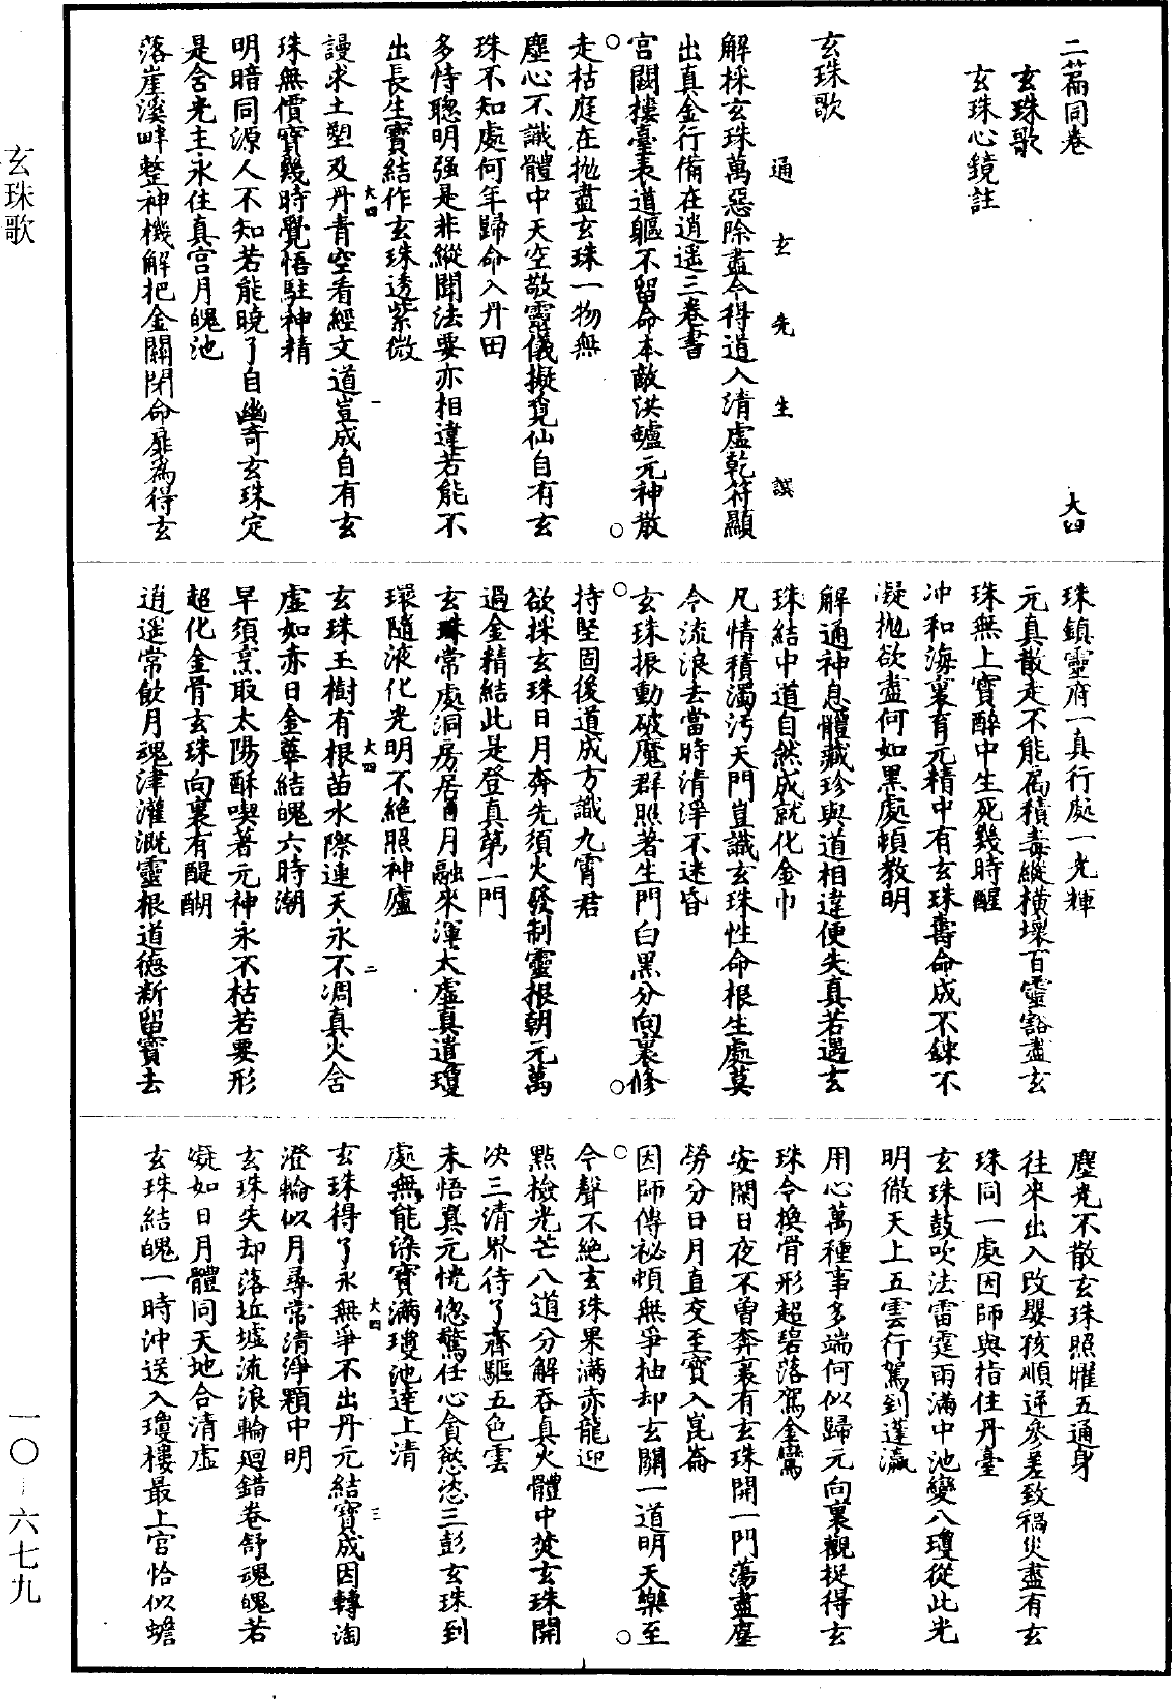 二篇同卷　大四
玄珠歌
玄珠心鏡註
玄珠歌
通玄先生譔
解採玄珠萬惡除盡令得道入清虛乾符顯
出真金行備在逍遥三卷書
宮闕樓臺表道軀不留命本敵洪鑪元神散
走枯庭在抛盡玄珠一物無
塵心不識體中天空敬靈儀擬覓仙自有玄
珠不知處何年歸命入丹田
多恃聰明强是非縱聞法要亦相違若能不
出長生寶結作玄珠透紫微
大四　一
謾求土塑及丹青空看經文道豈成自有玄
珠無價寶幾時覺悟駐神精
明暗同源人不知若能曉了自幽奇玄珠定
是含光主永住真宫月魄池
落崖溪畔整神機解把金關閉命扉為得玄
珠鎮靈府一真行處一光輝
元真散走不能居積毒縱横壞百靈谿盡玄
珠無上寶醉中生死幾時醒
冲和海裏育元精中有玄珠壽命成不鍊不
凝抛欲盡何如黑處頓教明
解通神息體藏珍與道相違便失真若遇玄
珠結中道自然成就化金巾
凡情積濁污天門豈識玄珠性命根生處莫
令流浪去當時清淨不迷昏
玄珠振動破魔群照著生門白黑分向裏修
持堅固後道成方識九霄君
欲採玄珠日月奔先須火發制靈根朝元萬
過金精結此是登真第一門
玄珠常處洞房居日月融來渾太虛真道瓊
環隨液化光明不絕照神廬
大四　二
玄珠玉樹有根苗水際連天永不凋真火含
虛如赤日金華結魄六時潮
早須烹取太陽酥喫著元神永不枯若要形
超化金骨玄珠向裏有醍醐
逍遥常飲月魂津灌溉靈根道德新留寶去
塵光不散玄珠照曜五通身
往來出入改嬰孩順逆參差致禍災盡有玄
珠同一處因師與指住丹臺
玄珠鼓吹法雷霆雨滿中池變八瓊從此光
明徹天上五雲行駕到蓬瀛
用心萬種事多端何似歸元向裏觀捉得玄
珠令換骨形超碧落駕金鸞
安閑日夜不曾奔裏有玄珠開一門蕩盡塵
勞分日月直交至寶入崑崙
因師傳祕頓無爭抽却玄關一道明天樂至
今聲不絕玄珠果滿赤龍迎
點檢光芒八道分解吞真火體中焚玄珠開
決三清界待了齊驅五色雲
未悟真元恍惚驚任心貪慾恣三彭玄珠到
處無能染寶滿瓊池達上清
大四　三
玄珠得了永無爭不出丹元結寶成因轉淘
澄輪似月尋常清淨顆中明
玄珠失却落近墟流浪輪廻錯卷舒魂魄若
凝如日月體同天地合清虛
玄珠結魄一時沖送入瓊樓最上宫恰似蟾
玄珠歌
一〇—六七九